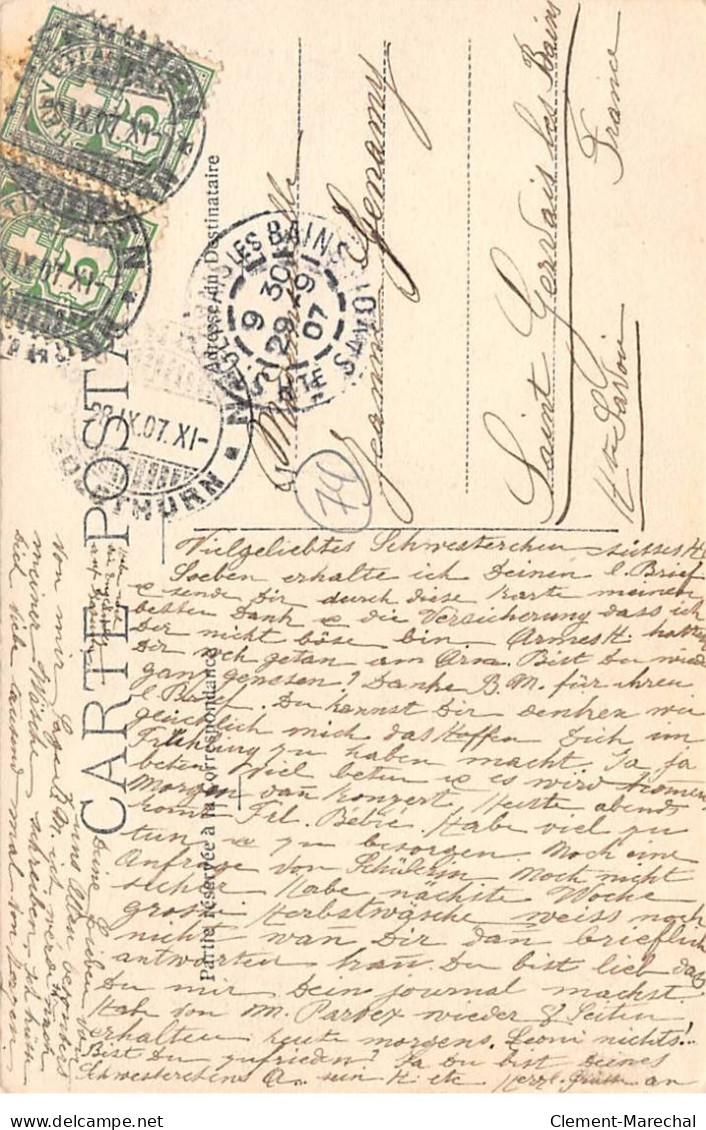 CARTE POSTALE
Partie réservée à la correspondance
Adresse du Destinataire
HELVETIA
SOLOTHURN
28.IX.07.XI-
ST GERVAIS LES BAINS
9 30
29 -9
07
HTE SAVOIE
74
Mademoiselle
Jeanne Genamy
Saint Gervais les Bains
Hte Savoie
France
Vielgeliebtes Schwesterchen süsses H
Soeben erhalte ich Deinen l. Brief
& sende Dir durch diese Karte meinen
besten Dank & die Versicherung dass ich
Dir nicht böse bin. Armes H. hatte
Dir weh getan am Arm. Bist Du wieder
ganz genesen? Danke B. M. für ihren
l. Brief. Du kannst Dir denken wie
glücklich mich das Hoffen Dich im
Frühling zu haben macht. Ja ja
beten viel beten & es wird kommen
Morgen dan Konzert, Heute abend
kom Frl. Betié. Habe viel zu
tun & zu besorgen. Noch eine
Anfrage von Schülerin. Noch nicht
sicher. Habe nächste Woche
grosse Herbstwäsche weiss noch
nicht wan Dir dan brieflich
antworten kan. Du bist lieb das
Du mir Dein journal machst.
Hab von M. Parvex wieder 8 Seiten
erhalten heute morgens. Leoni nichts!..
Bist Du zufrieden? Ja Du bist Deines
Schwesterchens A. sein H. etc Herzl. Grüsse an
Deine Lieben von
uns Allen besonders
von mir. Sage B. M. ich werde nach
meiner Wäsche schreiben. ich küsse
Dich viele tausend mal von Herzen
delcampe.net
Clement-Marechal